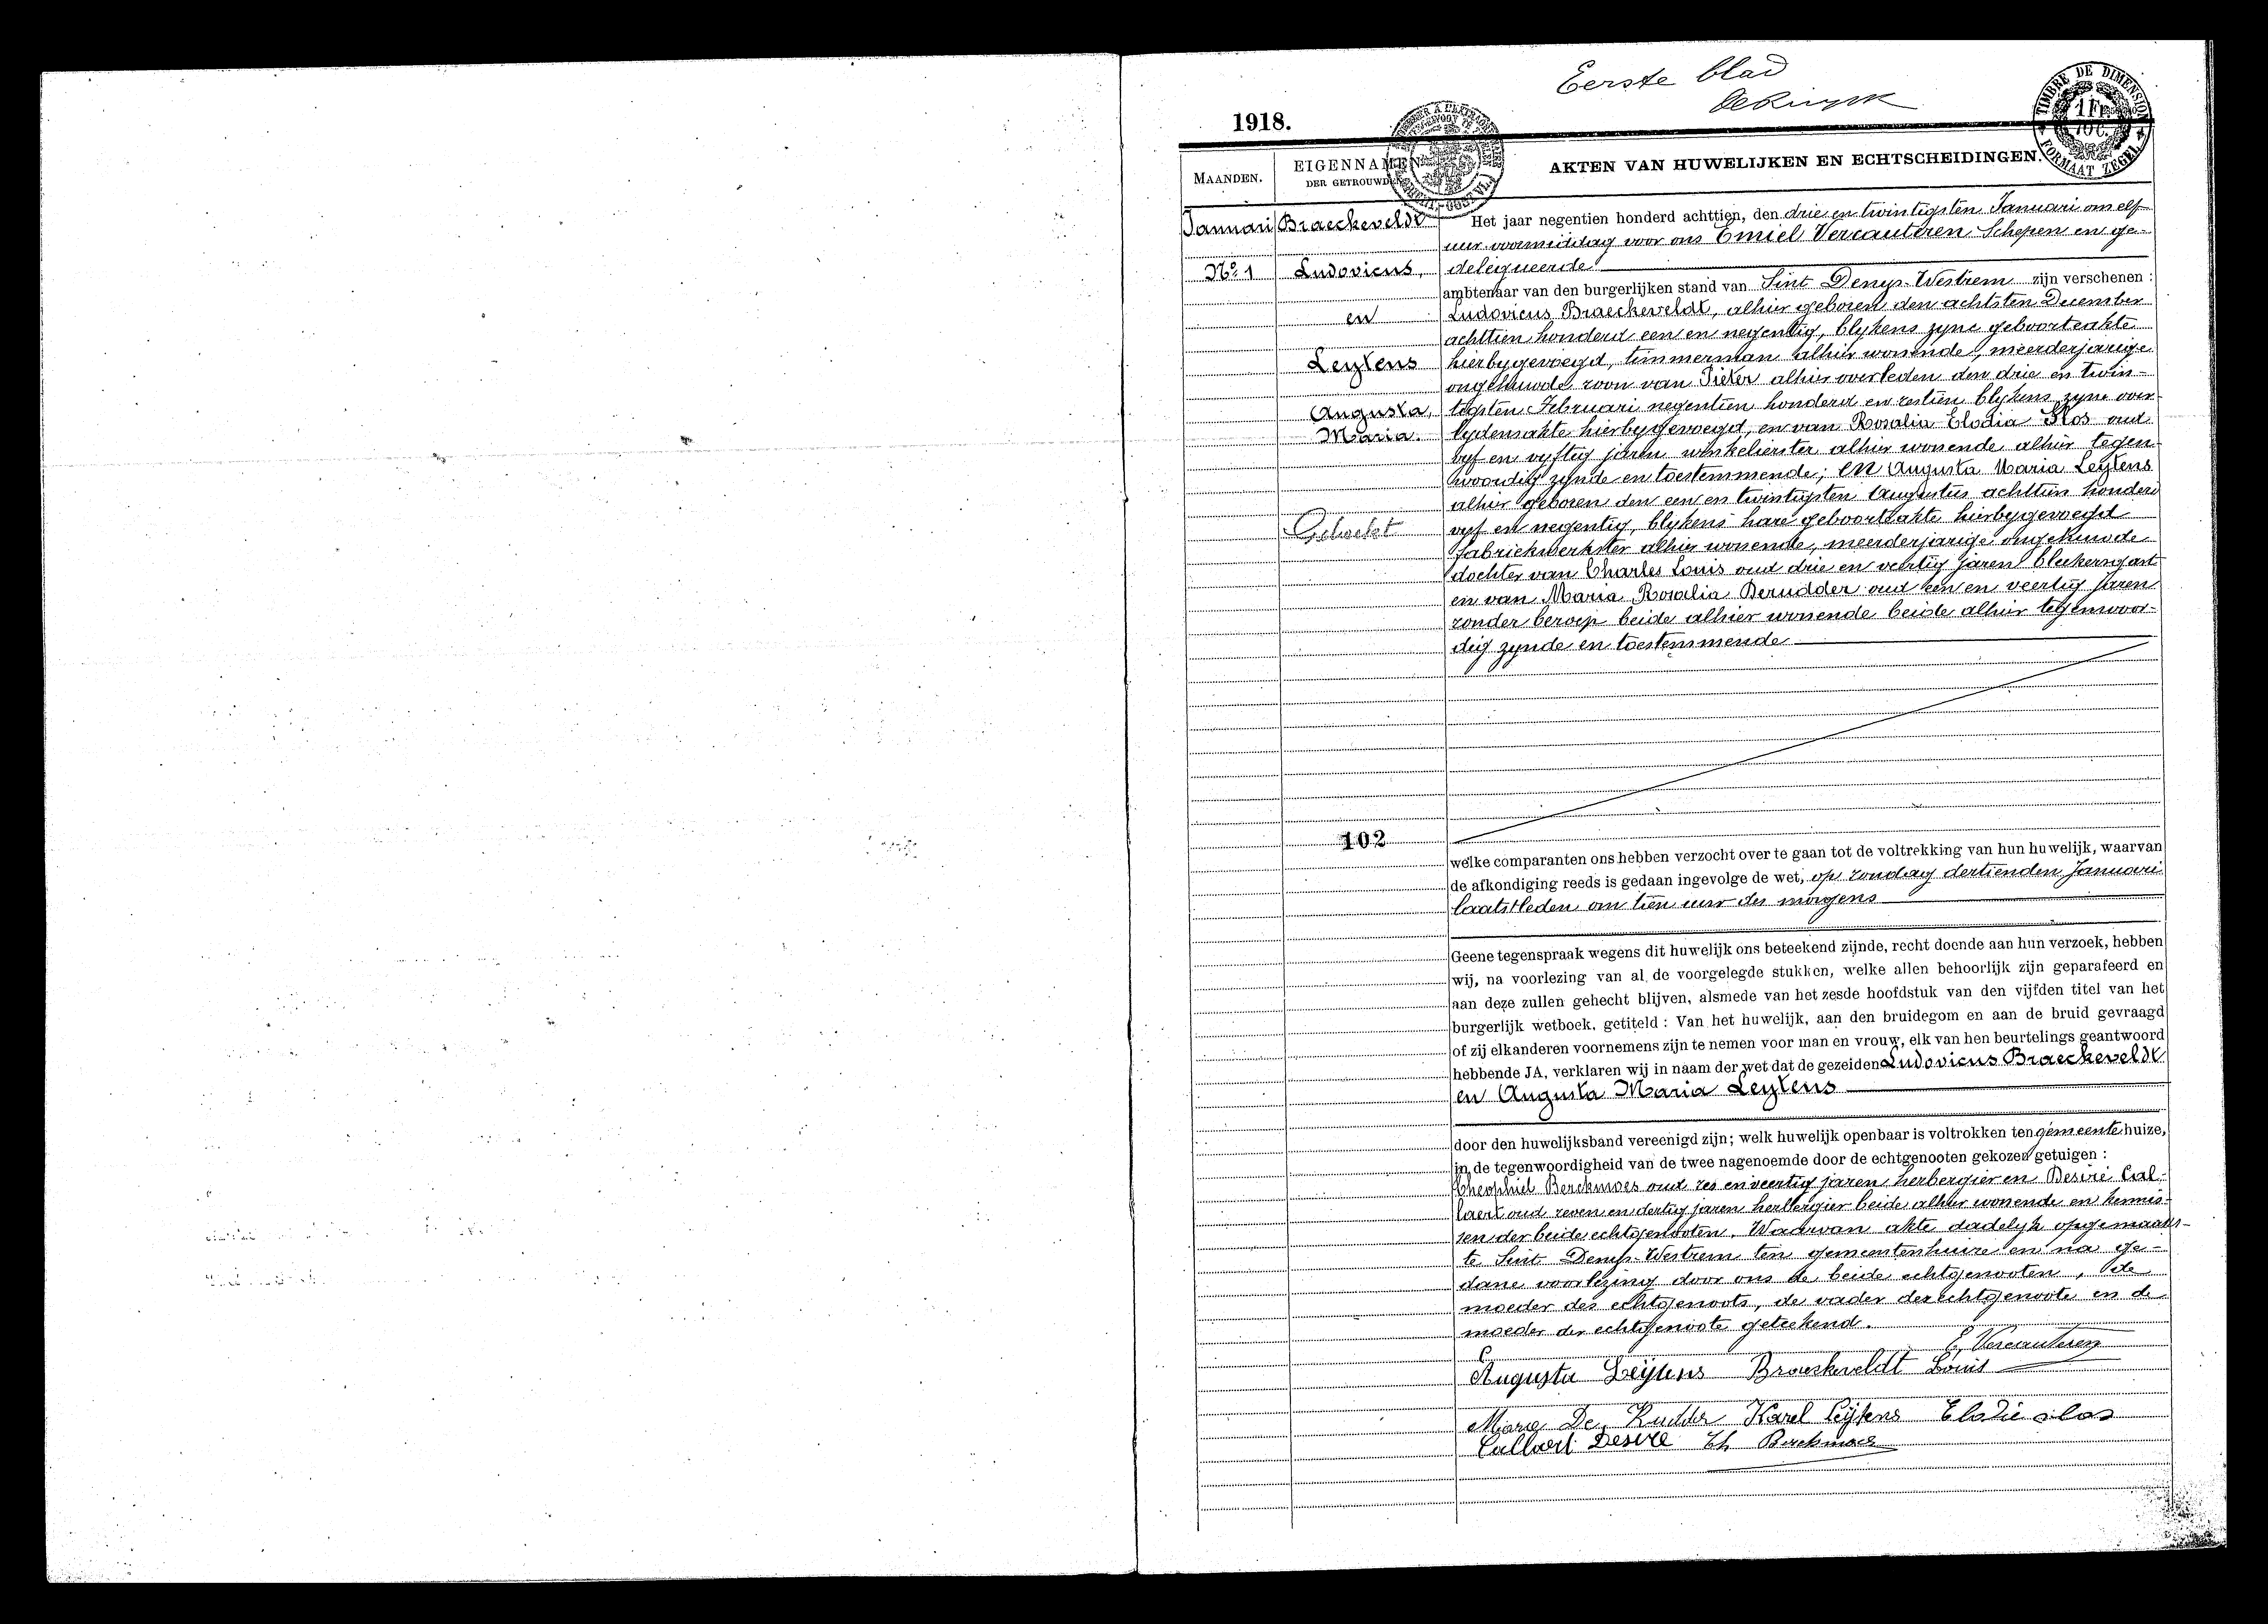 Eerste blad
1918.
TIMBRE DE DIMENSION
1 Fr.
10 C.
FORMAAT ZEGEL
MAANDEN.
EIGENNAMEN
DER GETROUWDEN
AKTEN VAN HUWELIJKEN EN ECHTSCHEIDINGEN.
Januari
Nº 1
Braeckeveldt
Ludovicus,
en
Leytens
Augusta,
Maria.
102
Het jaar negentien honderd achttien, den drie en twintigsten Januari om elf
uur voormiddag voor ons Emiel Vercauteren Schepen en ge-
delegueerde
ambtenaar van den burgerlijken stand van Sint Denys-Westrem zijn verschenen :
Ludovicus Braeckeveldt, alhier geboren den achtsten December
achttien honderd een en negentig, blykens zyne geboorteakte
hierbygevoegd, timmerman alhier wonende, meerderjarige
ongehuwde zoon van Pieter alhier overleden den drie en twin-
tigsten Februari negentien honderd en zestien blykens zyne over-
lydensakte hierbygevoegd, en van Rosalia Elodia Slos oud
vyf en vyftig jaren winkelierster alhier wonende alhier tegen-
woordig zynde en toestemmende; en Augusta Maria Leytens
alhier geboren den een en twintigsten Augustus achttien honderd
vyf en negentig, blykens hare geboorteakte hierbygevoegd
fabriekwerkster alhier wonende, meerderjarige ongehuwde
dochter van Charles Louis oud drie en veertig jaren bleekersgast
en van Maria Rosalia Derudder oud een en veertig jaren
zonder beroep beide alhier wonende beide alhier tegenwoor-
dig zynde en toestemmende
welke comparanten ons hebben verzocht over te gaan tot de voltrekking van hun huwelijk, waarvan
de afkondiging reeds is gedaan ingevolge de wet, op zondag dertienden Januari
laatstleden om tien uur des morgens
Geene tegenspraak wegens dit huwelijk ons beteekend zijnde, recht doende aan hun verzoek, hebben
wij, na voorlezing van al de voorgelegde stukken, welke allen behoorlijk zijn geparafeerd en
aan deze zullen gehecht blijven, alsmede van het zesde hoofdstuk van den vijfden titel van het
burgerlijk wetboek, getiteld : Van het huwelijk, aan den bruidegom en aan de bruid gevraagd
of zij elkanderen voornemens zijn te nemen voor man en vrouw, elk van hen beurtelings geantwoord
hebbende JA, verklaren wij in naam der wet dat de gezeiden Ludovicus Braeckeveldt
en Augusta Maria Leytens
door den huwelijksband vereenigd zijn; welk huwelijk openbaar is voltrokken ten gemeentehuize,
in de tegenwoordigheid van de twee nagenoemde door de echtgenooten gekozen getuigen :
Theophiel Berckmoes oud zes en veertig jaren herbergier en Desiré Cal-
laert oud zeven en dertig jaren herbergier beide alhier wonende en kennis-
sen der beide echtgenooten. Waarvan akte dadelyk opgemaakt
te Sint Denys-Westrem ten gemeentenhuize en na ge-
dane voorlezing door ons de beide echtgenooten, de
moeder des echtgenoots, de vader der echtgenoote en de
moeder der echtgenoote geteekend.
E. Vercauteren
Augusta Leÿtens Braeckeveldt Louis
Marie De Rudder Karel Leÿtens Elodie Slos
Callaert Desire Th Berckmoes